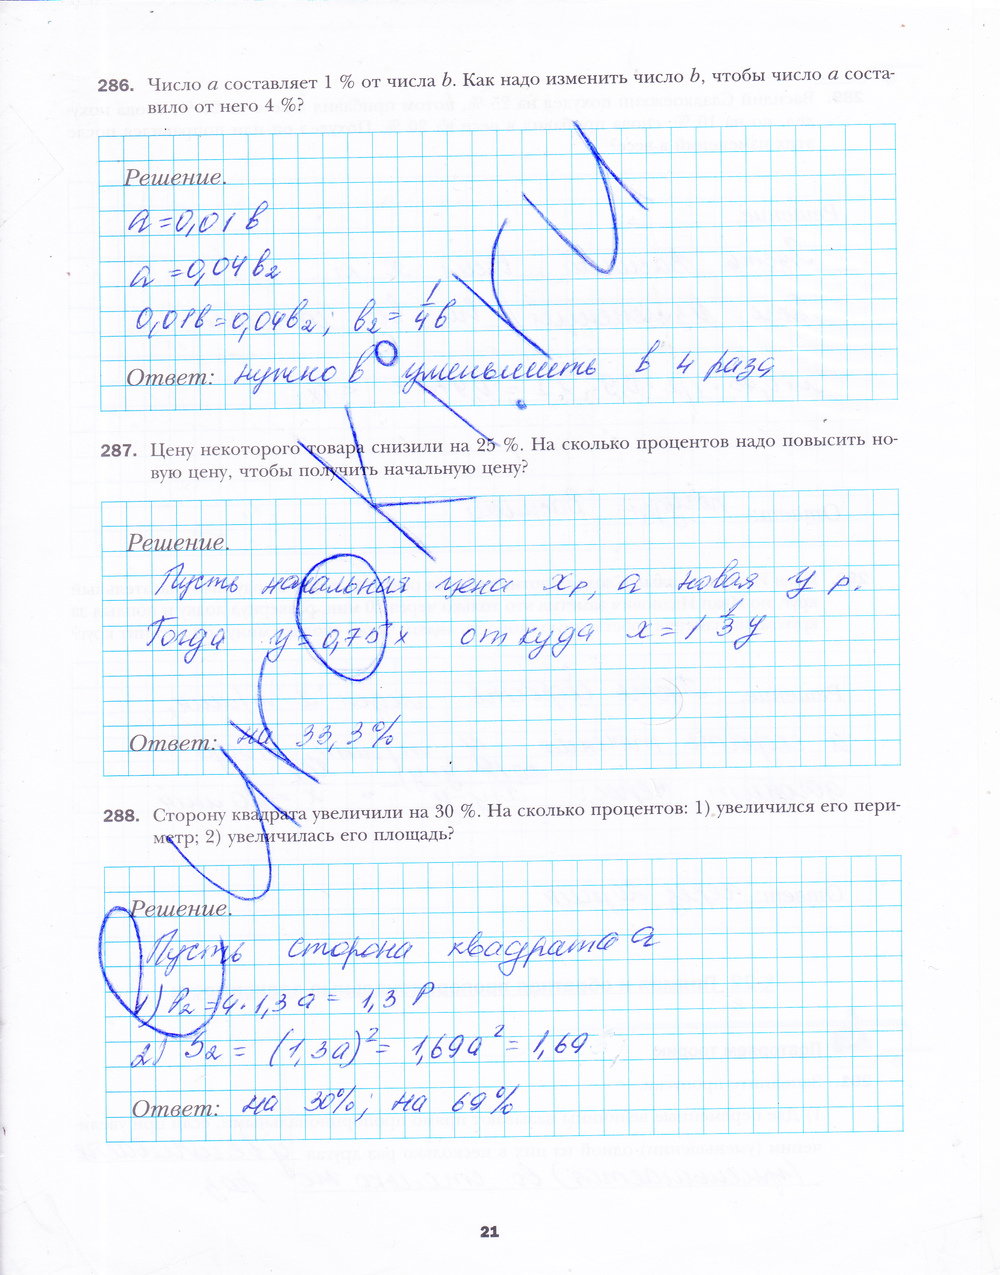 286. Число a составляет 1 % от числа b. Как надо изменить число b, чтобы число a соста-
вило от него 4 %?
Решение.
a = 0,01 в
a = 0,04 в2
0,01в = 0,04в2; в2 = 1/4 в
Ответ: нужно в уменьшить в 4 раза
287. Цену некоторого товара снизили на 25 %. На сколько процентов надо повысить но-
вую цену, чтобы получить начальную цену?
Решение.
Пусть начальная цена x р, а новая y р.
Тогда y = 0,75 x откуда x = 1 1/3 y
Ответ: на 33,3%
288. Сторону квадрата увеличили на 30 %. На сколько процентов: 1) увеличился его пери-
метр; 2) увеличилась его площадь?
Решение.
Пусть сторона квадрата a
1) P2 = 4 · 1,3 a = 1,3 P
2) S2 = (1,3a)² = 1,69a² = 1,69
Ответ: на 30%; на 69%
21